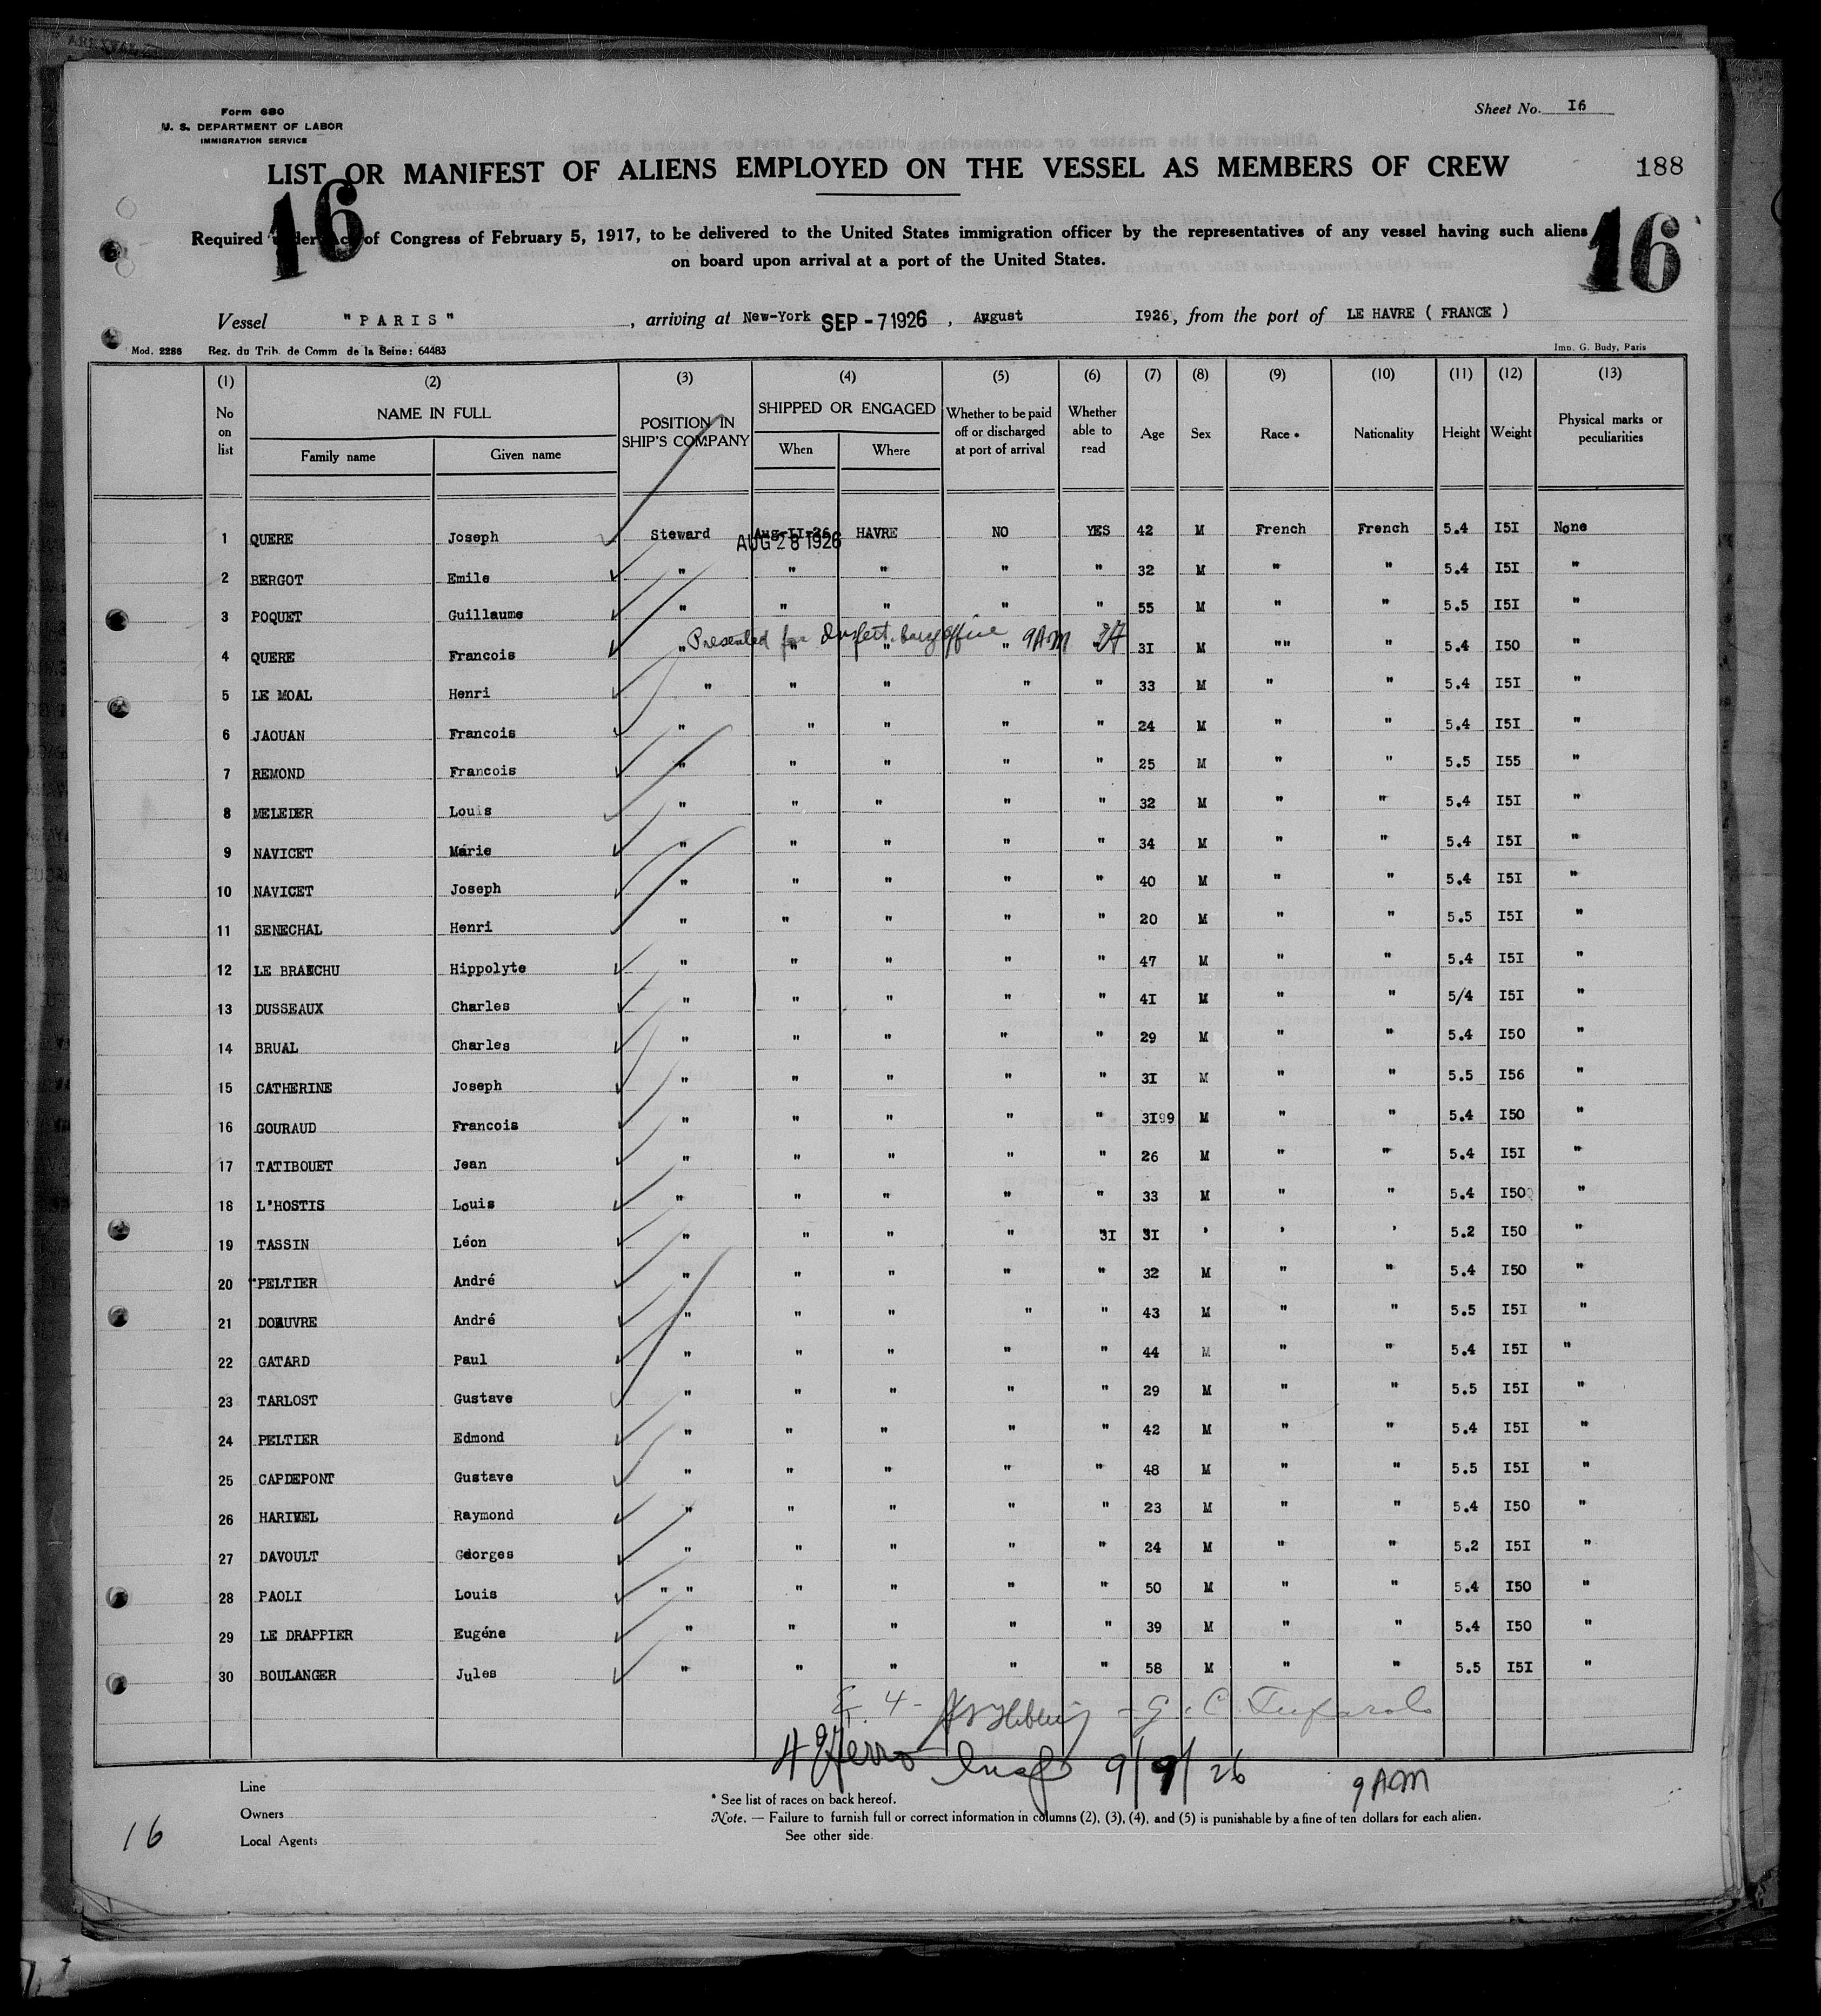 Form 680
U. S. DEPARTMENT OF LABOR
IMMIGRATION SERVICE
Sheet No. I6
LIST OR MANIFEST OF ALIENS EMPLOYED ON THE VESSEL AS MEMBERS OF CREW 188
16 16
Required under Act of Congress of February 5, 1917, to be delivered to the United States immigration officer by the representatives of any vessel having such aliens
on board upon arrival at a port of the United States.
Vessel "PARIS", arriving at New-York SEP -7 1926, August 1926, from the port of LE HAVRE ( FRANCE )
Mod. 2286 Reg. du Trib. de Comm de la Seine: 64483 Imp. G. Budy, Paris
(1) (2) (3) (4) (5) (6) (7) (8) (9) (10) (11) (12) (13)
No on list NAME IN FULL Family name Given name POSITION IN SHIP'S COMPANY SHIPPED OR ENGAGED When Where Whether to be paid off or discharged at port of arrival Whether able to read Age Sex Race * Nationality Height Weight Physical marks or peculiarities
1 QUERE Joseph Steward Aug-II-26 HAVRE NO YES 42 M French French 5.4 I5I None
AUG 28 1926
2 BERGOT Emile " " " " " 32 M " " 5.4 I5I "
3 POQUET Guillaume " " " " " 55 M " " 5.5 I5I "
Presented for 9AM
4 QUERE Francois " " " " " 3I M "" " 5.4 I50 "
5 LE MOAL Henri " " " " " 33 M " " 5.4 I5I "
6 JAOUAN Francois " " " " " 24 M " " 5.4 I5I "
7 REMOND Francois " " " " " 25 M " " 5.5 I55 "
8 MELEDER Louis " " " " " 32 M " " 5.4 I5I "
9 NAVICET Marie " " " " " 34 M " " 5.4 I5I "
10 NAVICET Joseph " " " " " 40 M " " 5.4 I5I "
11 SENECHAL Henri " " " " " 20 M " " 5.5 I5I "
12 LE BRANCHU Hippolyte " " " " " 47 M " " 5.4 I5I "
13 DUSSEAUX Charles " " " " " 4I M " " 5/4 I5I "
14 BRUAL Charles " " " " " 29 M " " 5.4 I50 "
15 CATHERINE Joseph " " " " " 3I M " " 5.5 I56 "
16 GOURAUD Francois " " " " " 3I99 M " " 5.4 I50 "
17 TATIBOUET Jean " " " " " 26 M " " 5.4 I5I "
18 L'HOSTIS Louis " " " " " 33 M " " 5.4 I50 "
19 TASSIN Léon " " " " 3I 3I ' ' ' 5.2 I50 "
20 "PELTIER André " " " " " 32 M " " 5.4 I50 "
21 DOEUVRE André " " " " " 43 M " " 5.5 I5I "
22 GATARD Paul " " " " " 44 M " " 5.4 I5I "
23 TARLOST Gustave " " " " " 29 M " " 5.5 I5I "
24 PELTIER Edmond " " " " " 42 M " " 5.4 I5I "
25 CAPDEPONT Gustave " " " " " 48 M " " 5.5 I5I "
26 HARIVEL Raymond " " " " " 23 M " " 5.4 I50 "
27 DAVOULT Georges " " " " " 24 M " " 5.2 I5I "
28 PAOLI Louis " " " " " " 50 M " " 5.4 I50 "
29 LE DRAPPIER Eugéne " " " " " 39 M " " 5.4 I50 "
30 BOULANGER Jules " " " " " 58 M " " 5.5 I5I "
4 - G. C.
9/9/26 9AM
Line
Owners
Local Agents
* See list of races on back hereof.
Note. — Failure to furnish full or correct information in columns (2), (3), (4), and (5) is punishable by a fine of ten dollars for each alien.
See other side.
16